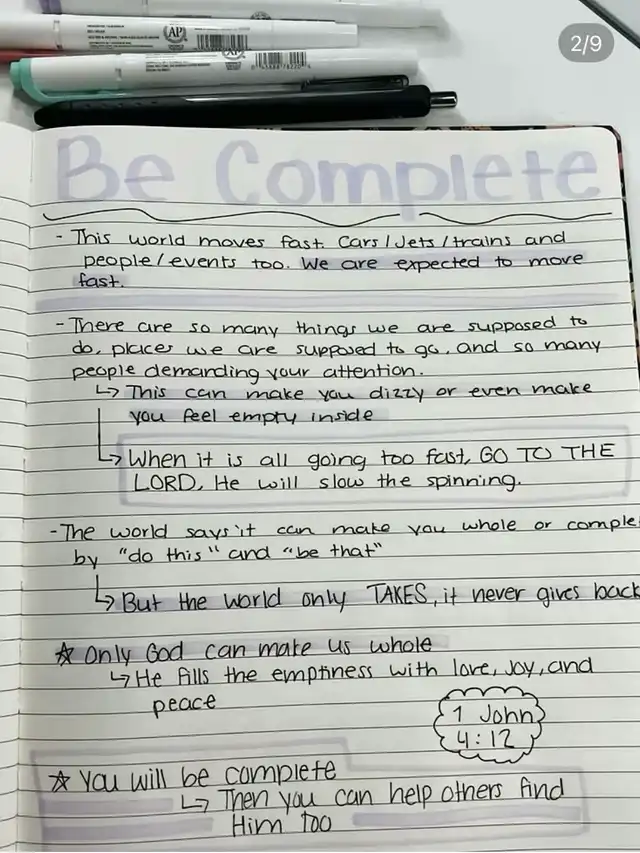 2/9
AP
AP
Be Complete
- This world moves fast Cars/Jets/trains and
people/events too. We are expected to move
fast.
- There are so many things we are supposed to
do, places we are supposed to go, and so many
people demanding your attention.
↳ This can make you dizzy or even make
you feel empty inside
↳ When it is all going too fast, GO TO THE
LORD, He will slow the spinning.
- The world says it can make you whole or comple
by "do this" and "be that"
↳ But the world only TAKES, it never gives back
☆ Only God can make us whole
↳ He fills the emptiness with love, joy, and
peace
1 John
4:12
☆ You will be complete
↳ Then you can help others find
Him too